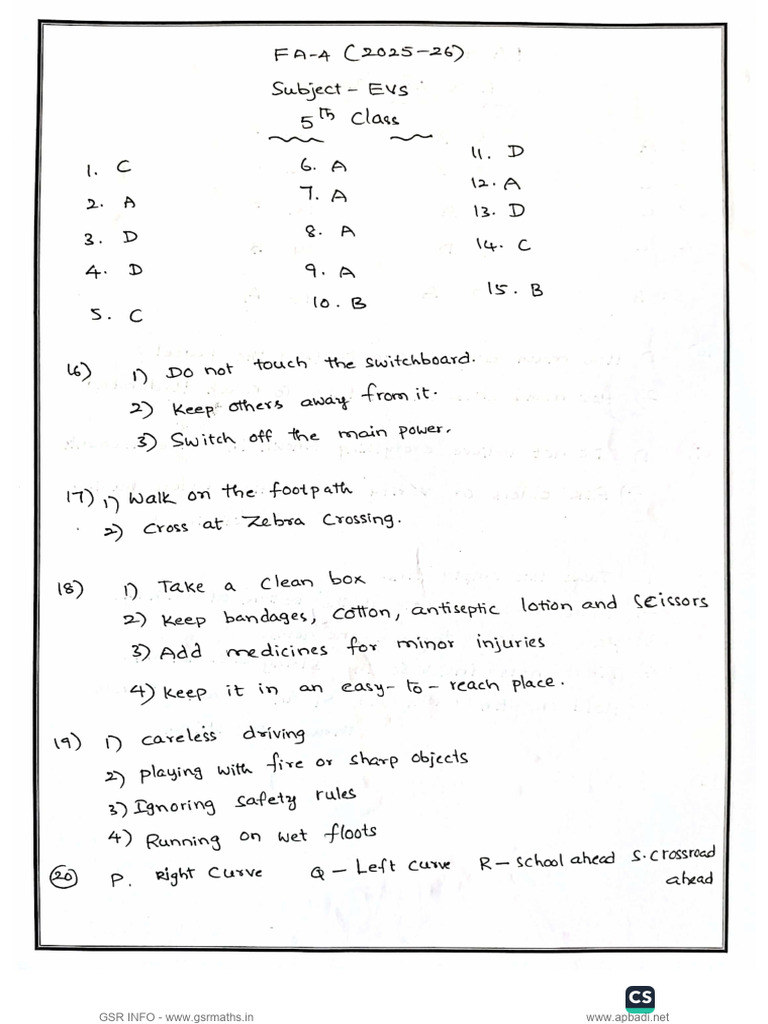 FA-4 (2025-26)
Subject - EVS
5th Class
1. C
2. A
3. D
4. D
5. C
6. A
7. A
8. A
9. A
10. B
11. D
12. A
13. D
14. C
15. B
16) 1) Do not touch the switchboard.
2) Keep others away from it.
3) Switch off the main power.
17) 1) Walk on the footpath
2) Cross at Zebra Crossing.
18) 1) Take a clean box
2) Keep bandages, cotton, antiseptic lotion and Scissors
3) Add medicines for minor injuries
4) Keep it in an easy-to-reach place.
19) 1) careless driving
2) playing with fire or sharp objects
3) Ignoring safety rules
4) Running on wet floots
20 P. Right Curve Q - Left curve R - school ahead S. Crossroad
ahead
CS
GSR INFO - www.gsrmaths.in www.apbadi.net